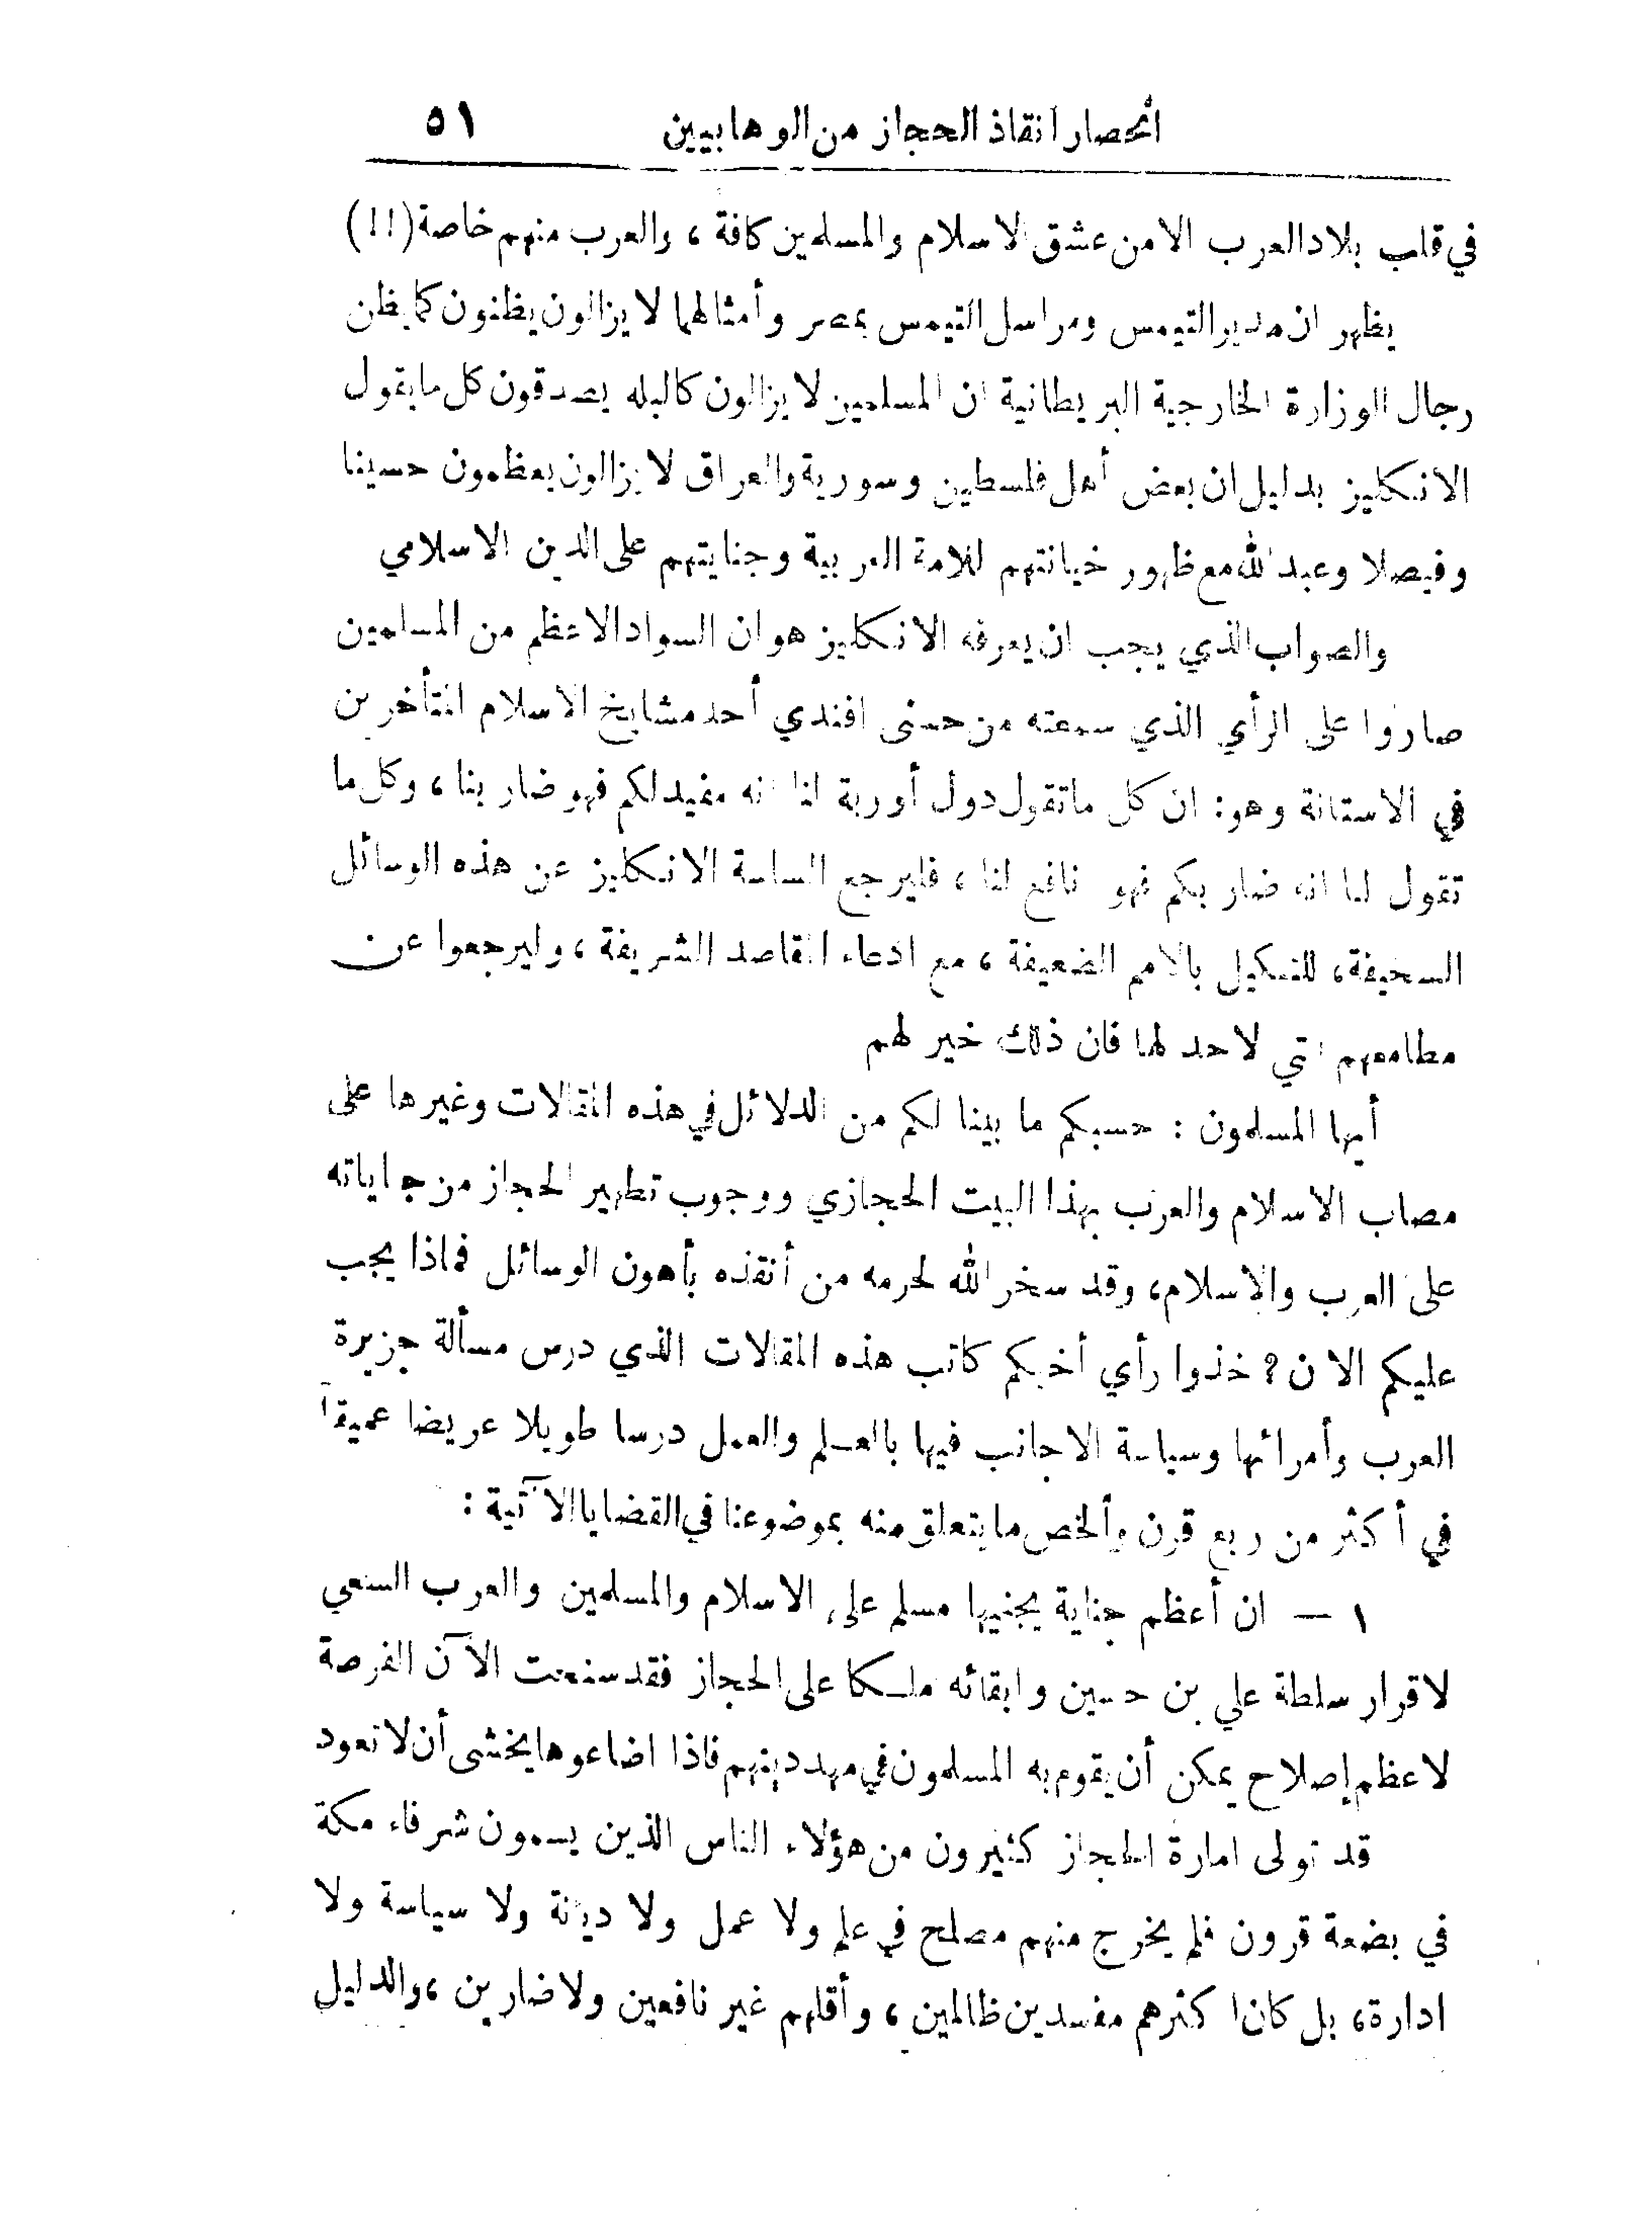 أنحصار انقاذ الحجاز من الوهابيين ٥١
في قلب بلاد العرب الا من عشق الاسلام والمسلمين كافة ، والعرب منهم خاصة (!!)
يظهر ان مدير التيمس ومراسل التيمس بمصر وأمثالهما لا يزالون يظنون كما يظن
رجال الوزارة الخارجية البريطانية ان المسلمين لا يزالون كالبله يصدقون كل ما يقول
الانكليز بدليل ان بعض أهل فلسطين وسورية والعراق لا يزالون يعظمون حسينا
وفيصلا وعبد الله مع ظهور خيانتهم للامة العربية وجنايتهم على الدين الاسلامي
والصواب الذي يجب ان يعرفه الانكليز هو ان السواد الاعظم من المسلمين
صاروا على الرأي الذي سمعته من حسنى افندي أحد مشايخ الاسلام المتأخرين
في الاستانة وهو: ان كل ما تقول دول أوربة لنا انه مفيد لكم فهو ضار بنا ، وكل ما
تقول لنا انه ضار بكم فهو نافع لنا ، فليرجع الساسة الانكليز عن هذه الوسائل
السخيفة ، للتنكيل بالامم الضعيفة ، مع ادعاء المقاصد الشريفة ، وليرجعوا عن
مطامعهم التي لا حد لها فان ذلك خير لهم
أيها المسلمون : حسبكم ما بينا لكم من الدلائل في هذه المقالات وغيرها على
مصاب الاسلام والعرب بهذا البيت الحجازي ووجوب تطهير الحجاز من جناياته
على العرب والاسلام، وقد سخر الله لحرمه من أنقذه بأهون الوسائل فماذا يجب
عليكم الان ؟ خذوا رأي أخيكم كاتب هذه المقالات الذي درس مسألة جزيرة
العرب وأمرائها وسياسة الاجانب فيها بالعلم والعمل درسا طويلا عريضا عميقاً
في أكثر من ربع قرن وألخص ما يتعلق منه بموضوعنا في القضايا الآتية :
١ — ان أعظم جناية يجنيها مسلم على الاسلام والمسلمين والعرب السعي
لاقرار سلطة علي بن حسين وابقائه ملكا على الحجاز فقد سنحت الآن الفرصة
لاعظم إصلاح يمكن أن يقوم به المسلمون في مهد دينهم فاذا اضاعوها يخشى أن لا تعود
قد تولى امارة الحجاز كثيرون من هؤلاء الناس الذين يسمون شرفاء مكة
في بضعة قرون فلم يخرج منهم مصلح في علم ولا عمل ولا ديانة ولا سياسة ولا
ادارة، بل كان اكثرهم مفسدين ظالمين ، وأقلهم غير نافعين ولا ضارين ، والدليل